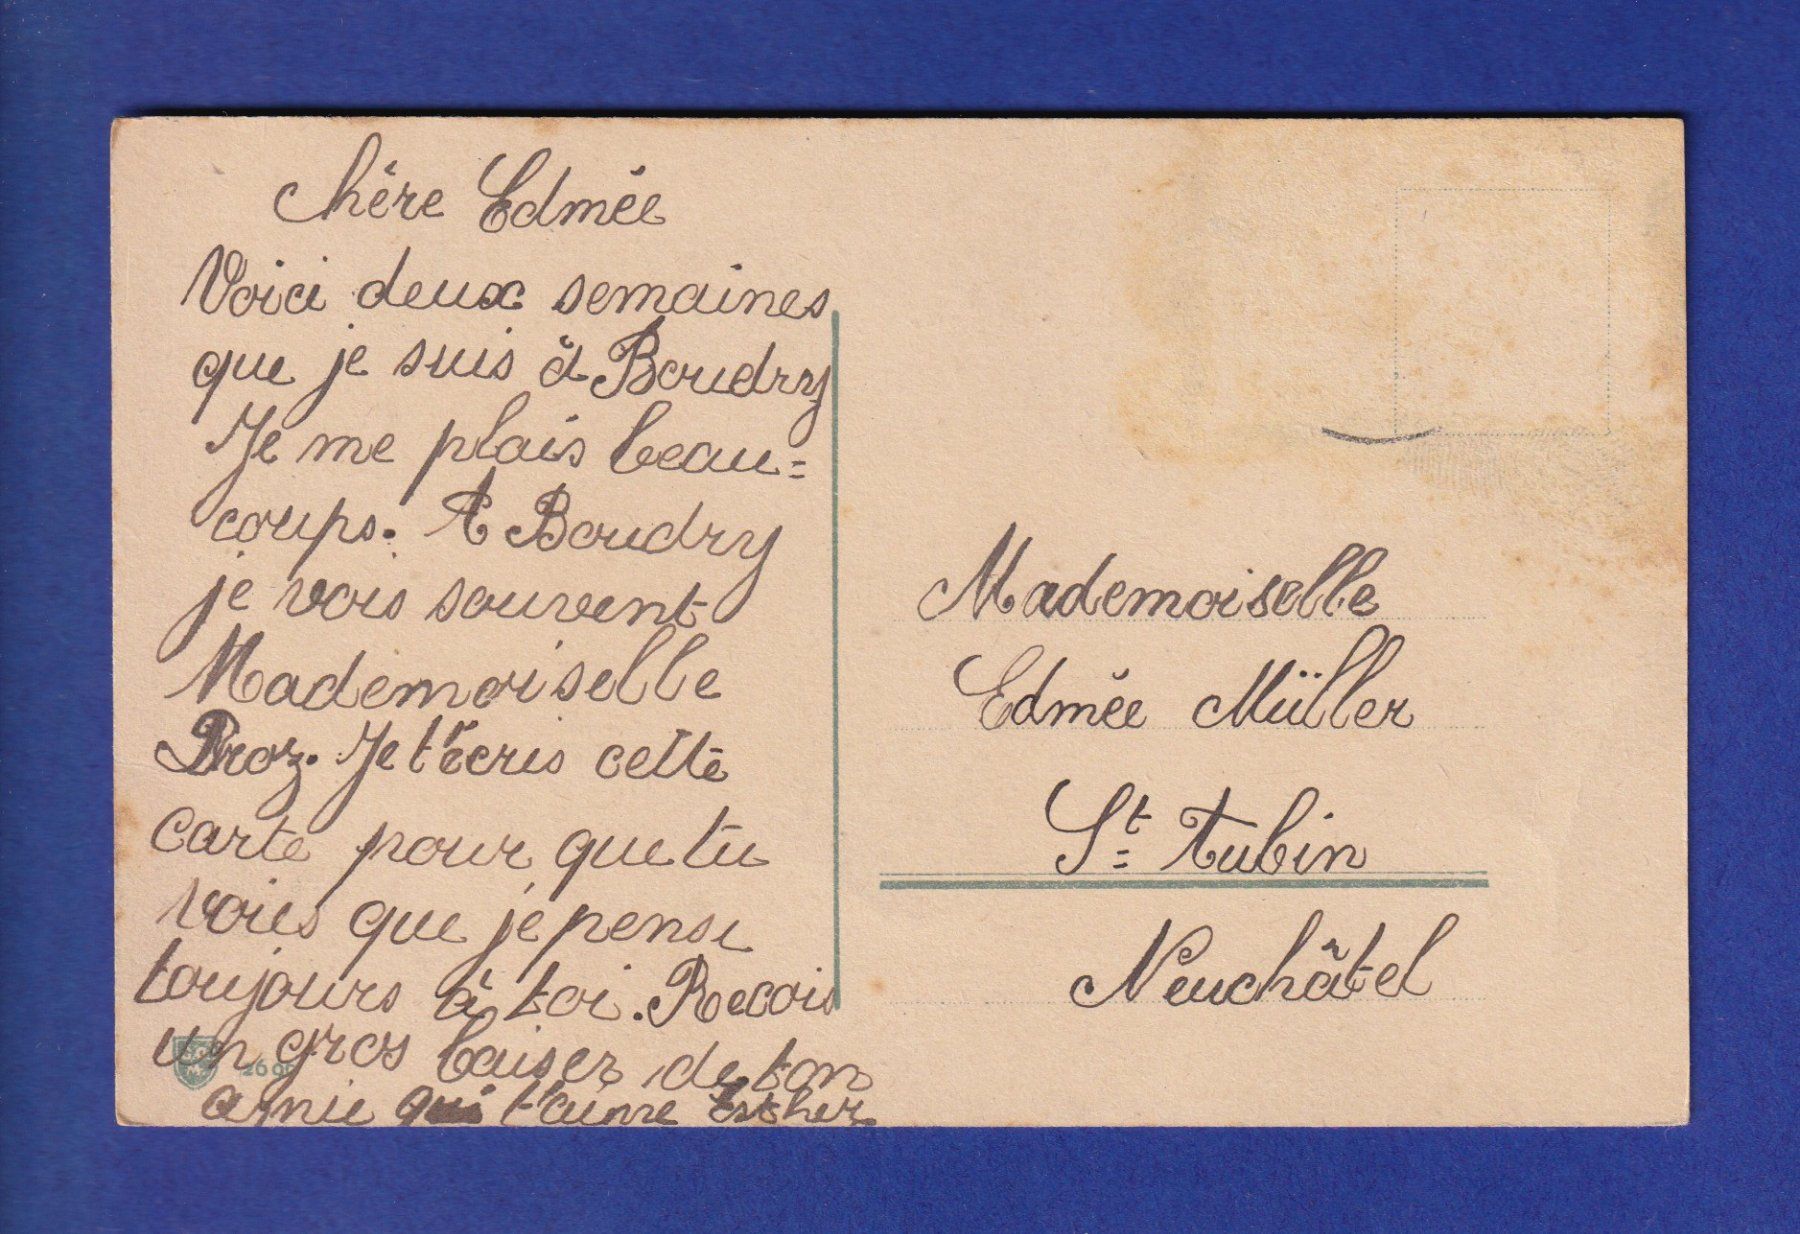 Chère Edmée
Voici deux semaines
que je suis à Boudry
Je me plais beau=
coups. A Boudry
je vois souvent
Mademoiselle
Proz. Je t'écris cette
carte pour que tu
voies que je pense
toujours à toi. Recois
un gros baiser de ton
amie qui t'aime Esther
Mademoiselle
Edmée Müller
St= Aubin
Neuchâtel